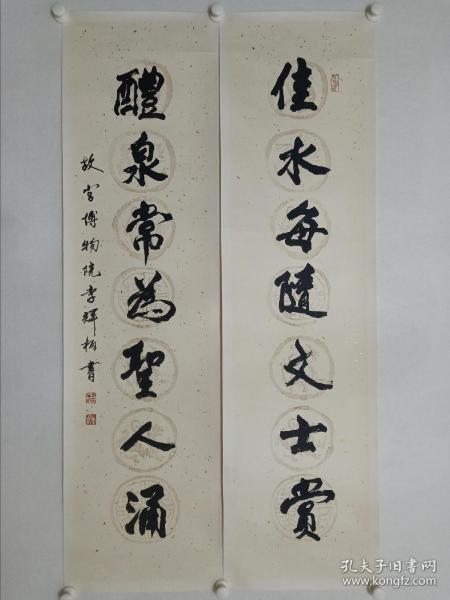 佳水每隨文士賞
醴泉常為聖人涌
故宫博物院李輝柄書
孔夫子旧书网
www.kongfz.com